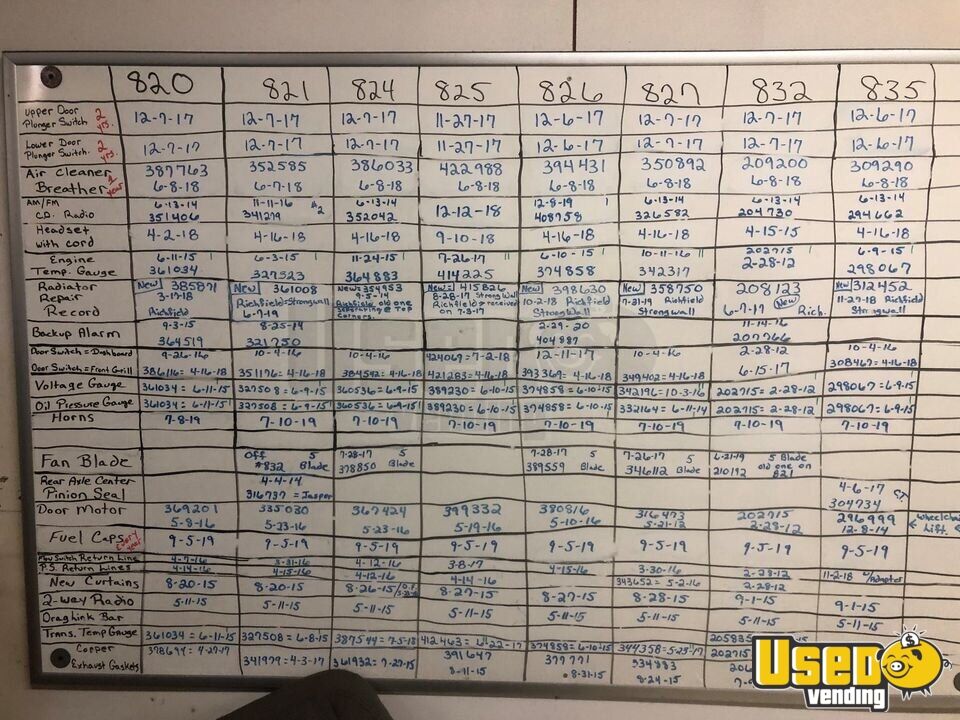 820 821 824 825 826 827 832 835
Upper Door Plunger Switch 2 yrs. 12-7-17 12-7-17 12-7-17 11-27-17 12-6-17 12-7-17 12-7-17 12-6-17
Lower Door Plunger Switch. 2 yrs. 12-7-17 12-7-17 12-7-17 11-27-17 12-6-17 12-7-17 12-7-17 12-6-17
Air Cleaner 387763 352585 386033 422988 394431 350892 209200 309290
Breather 1 year 6-8-18 6-7-18 6-8-18 6-8-18 6-8-18 6-8-18 6-8-18 6-8-18
AM/FM 6-13-14 11-11-16 #2 6-13-14 12-12-18 12-8-19 6-13-14 6-13-14 6-13-14
C.D. Radio 351406 341279 352042 408758 326582 204730 294662
Headset with cord 4-2-18 4-16-18 4-16-18 9-10-18 4-16-18 4-16-18 4-15-15 4-16-18
Engine 6-11-15 6-3-15 11-24-15 7-26-17 6-10-15 10-11-16 202715 6-9-15
Temp. Gauge 361034 327523 364883 414225 374858 342317 2-28-12 298067
Radiator New 385871 New 361008 New= 354953 New= 415826 New 398630 New 358750 208123 New 312452
Repair 3-17-18 Richfield=Strongwall 9-5-14 8-28-17 StrongWall 10-2-18 Richfield 7-31-19 Richfield New 11-27-18 Richfield
Record Richfield 6-7-19 Richfield old one separating @ top corners. Richfield received on 7-3-17 StrongWall Strongwall 6-7-17 Rich. Strongwall
Backup Alarm 9-3-15 8-25-14 2-29-20 11-14-16
364519 321750 404987 207766
Door Switch = Dashboard 9-26-16 10-4-16 10-4-16 424069=7-2-18 12-11-17 10-4-16 2-28-12 10-4-16
Door Switch = Front Grill 386116= 4-16-18 351176= 4-16-18 384542= 4-16-18 421283= 4-16-18 393369= 4-16-18 349402= 4-16-18 6-15-17 308467= 4-16-18
Voltage Gauge 361034 = 6-11-15 327508 = 6-9-15 360536 = 6-9-15 389230 = 6-10-15 374858 = 6-10-15 342196= 10-3-16 202715= 2-28-12 298067=6-9-15
Oil Pressure Gauge 361034 = 6-11-15 327508 = 6-9-15 360536 = 6-9-15 389230 = 6-10-15 374858= 6-10-15 332164 = 6-11-14 202715= 2-28-12 298067=6-9-15
Horns 7-8-19 7-10-19 7-10-19 7-10-19 7-10-19 7-10-19 7-10-19 7-10-19
Fan Blade Off #832 Blade 7-28-17 5 378850 Blade 7-28-17 5 389559 Blade 7-26-17 5 346112 Blade 5 Blade 210192 old one on 821
Rear Axle Center 4-4-14 4-6-17
Pinion Seal 316737 = Jasper 304734
Door Motor 369201 335030 367424 399332 380816 316473 202715 296999 wheelchair Lift.
5-8-16 5-23-16 5-23-16 5-19-16 5-10-16 5-21-12 2-28-12 12-8-14
Fuel Caps every year 9-5-19 9-5-19 9-5-19 9-5-19 9-5-19 9-5-19 9-5-19 9-5-19
Flow Switch Return Line 4-7-16 3-31-16 4-12-16 3-8-17 3-30-16
P.S. Return Lines 4-14-16 4-15-16 4-12-16 4-14-16 4-15-16 2-28-12 11-2-18 w/Adapter
New Curtains 8-20-15 8-20-15 8-26-15 8-27-15 8-27-15 343652= 5-2-16 8-28-15 2-28-12
2-way Radio 5-11-15 5-11-15 5-11-15 5-11-15 5-11-15 5-11-15 9-1-15 9-1-15
Draglink Bar 5-11-15 5-11-15
Trans. Temp Gauge 361034 = 6-11-15 327508 = 6-8-15 387544= 7-5-18 412463 374858= 6-10-15 344358=5-25-17 205835
Copper 378694 = 4-27-17 391647 379771 334383 202715
Exhaust Gaskets 341979=4-3-17 361932= 7-27-15 8-11-15 8-31-15 8-24-15
USED vending